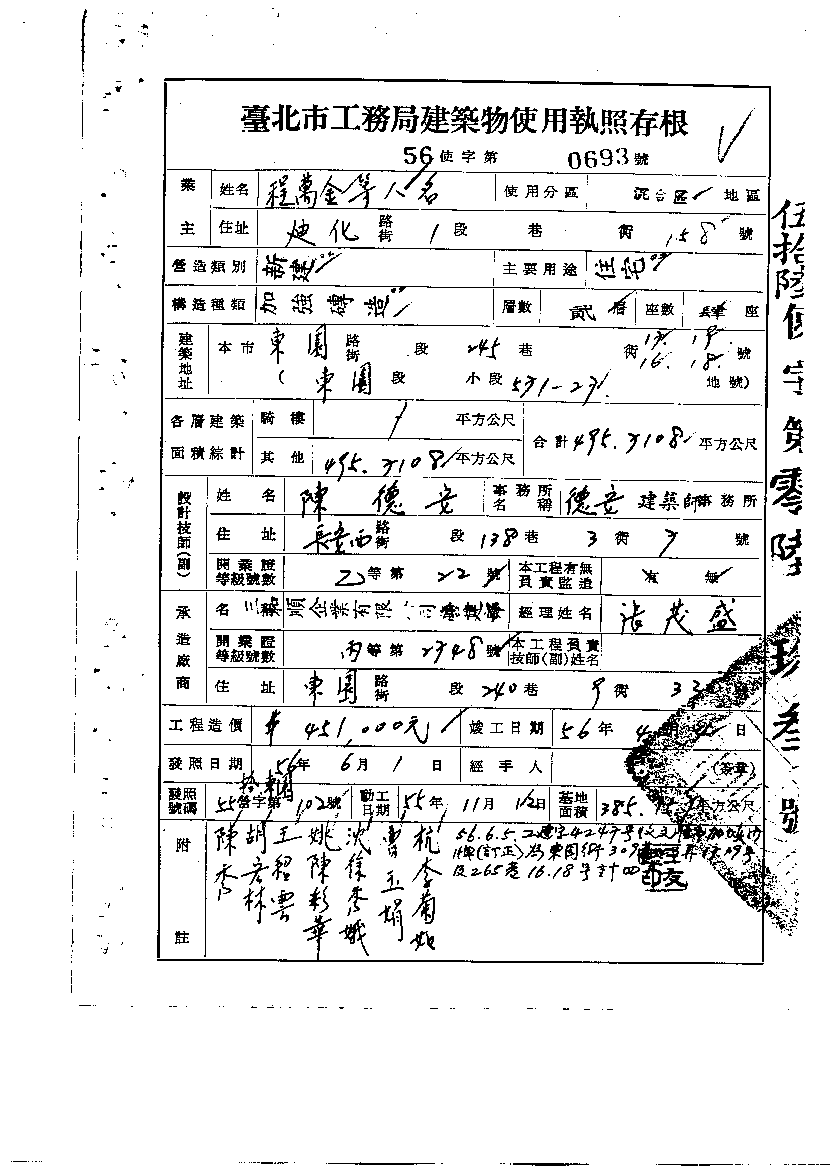 臺北市工務局建築物使用執照存根
56使字第 0693號
業主 姓名 程萬金等八名 使用分區 地區
住址 迪化路街 1段 巷 街 158號
營造類別 新建 主要用途 住宅
構造種類 加強磚造 層數 貳層 座數 肆座
建築地址 本市 東園路街 段 245巷 街 17.19.16.18.號
(東園段 小段 531-23 地號)
各層建築面積綜計 騎樓 / 平方公尺 合計 495.3108 平方公尺
其他 495.3108 平方公尺
設計技師(副) 姓名 陳德安 事務所名稱 德安建築師事務所
住址 長安西路街 段 138巷 3街 號
開業證等級號數 乙等第 22號 本工程有無負責監造 有 無
承造廠商 名稱 順企業有限公司 經理姓名 張茂盛
開業證等級號數 丙等第 2348號 本工程負責技師(副)姓名
住址 東園路街 段 240巷 街 號
工程造價 451,000元 竣工日期 56年 日
發照日期 56年 6月 1日 經手人 (簽章)
發照號碼 55營字第 102號 動工日期 55年 11月 12日 基地面積 385. 平方公尺
附註 陳秀 胡 林 王 雲 姚陳彩華 沈徐秀娥 曹玉娟 杭李菊如
56.6.5.
(訂正)為東園街309巷
及265巷16.18号計四
伍拾陸使字第零陸玖叁號